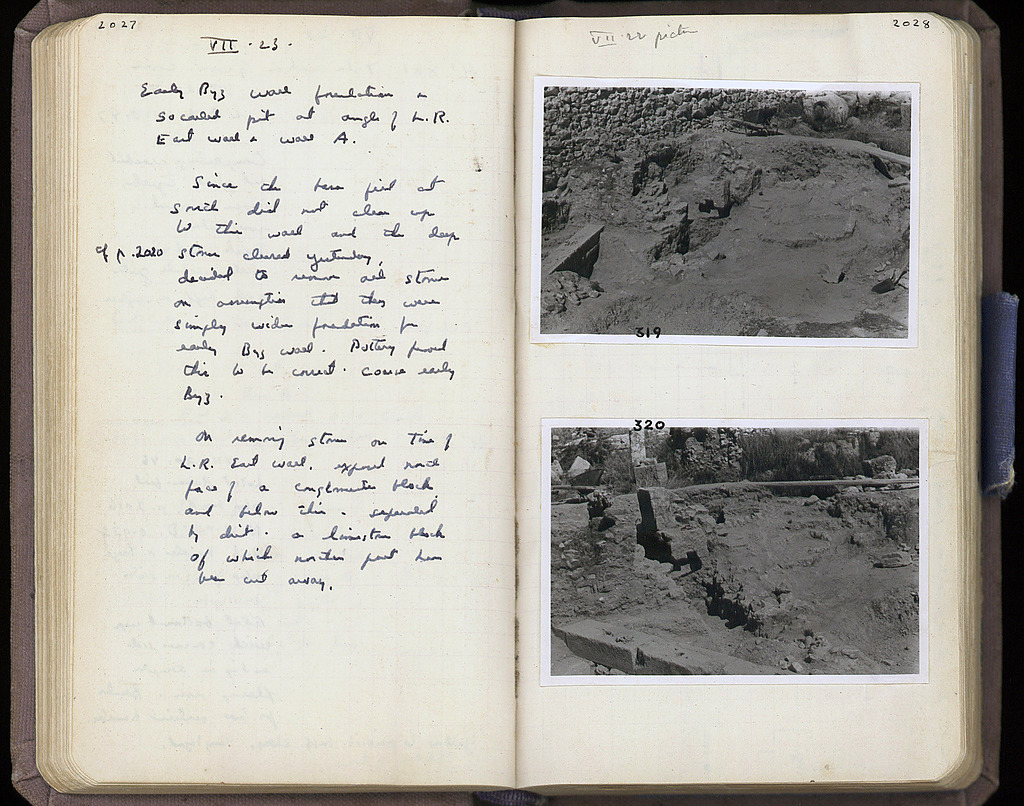 2027
VII · 23 ·
Early Byz wall foundation &
so called pit at angle of L.R.
East wall & wall A.
Since the here at
South did not clean up
to this wall and the deep
cf p. 2020 stones cleared yesterday,
decided to remove all stones
on assumption that they were
simply wider foundation for
early Byz wall. Pottery proved
this to be correct. Coarse early
Byz.
On removing stones on line of
L.R. East wall, exposed north
face of a conglomerate block
and below this - separated
by dirt - a limestone block
of which northern part has
been cut away.
2028
VII 22 picture
319
320